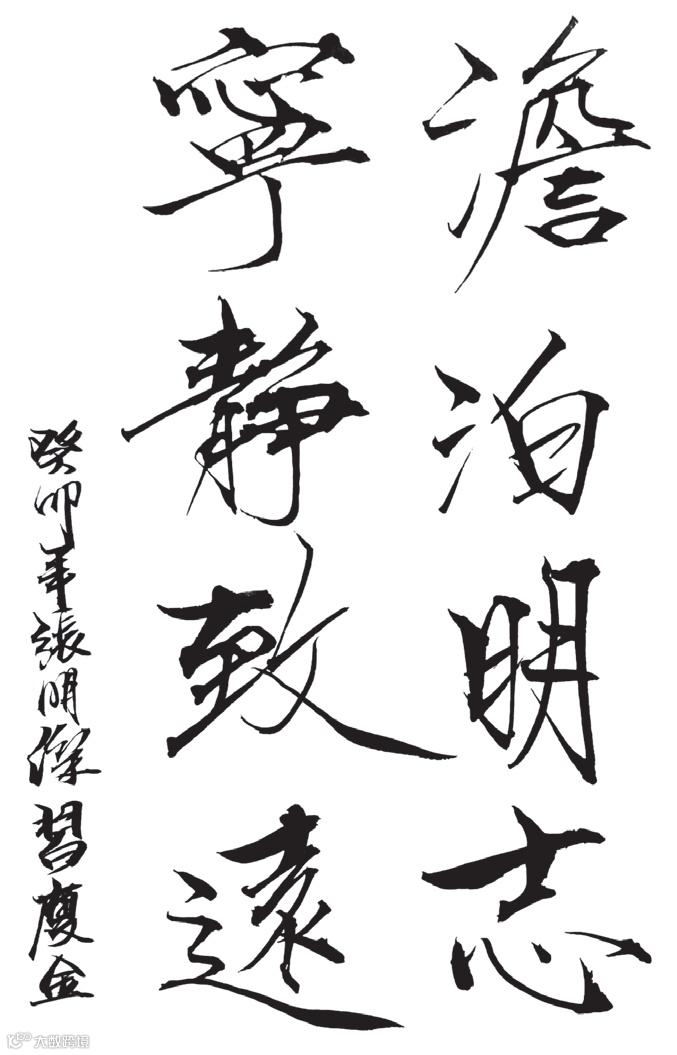 澹泊明志
寧靜致遠
癸卯年張明深習瘦金
大数跨境